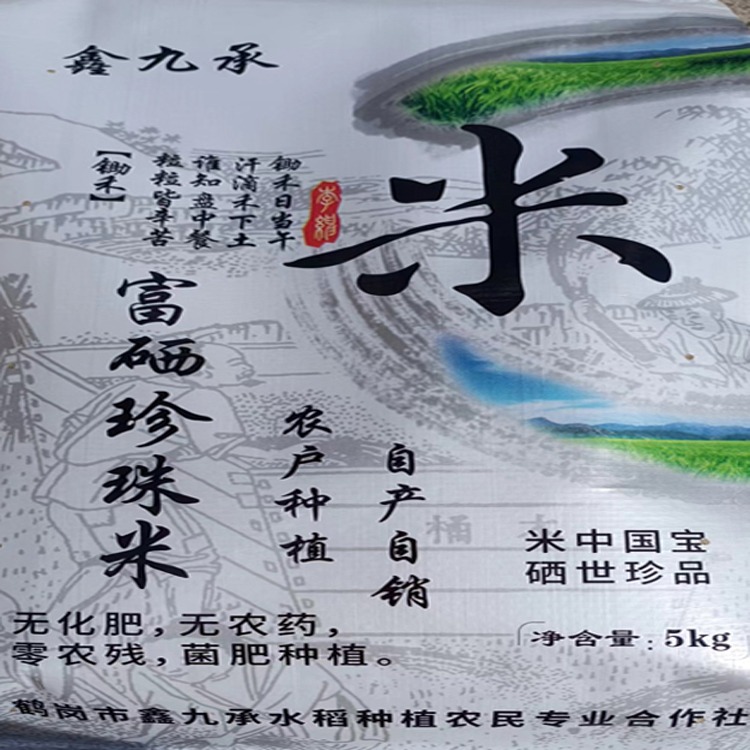 鑫九承
米
锄禾日当午
汗滴禾下土
谁知盘中餐
粒粒皆辛苦
【锄禾】
李绅
富硒珍珠米
农户种植
自产自销
米中国宝
硒世珍品
净含量:5kg
无化肥,无农药,
零农残,菌肥种植。
鹤岗市鑫九承水稻种植农民专业合作社